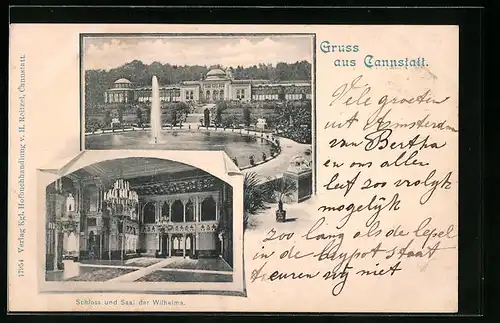 Gruss
aus Cannstatt.
Vele groeten
uit Amsterdam
van Bertha
en ons allen
leef zoo vrolyk
mogelyk
zoo lang als de lepel
in de brypot staat
treuren wy niet
Schloss und Saal der Wilhelma.
17954 Verlag Kgl. Hofbuchhandlung v. H. Reitzel, Cannstatt.